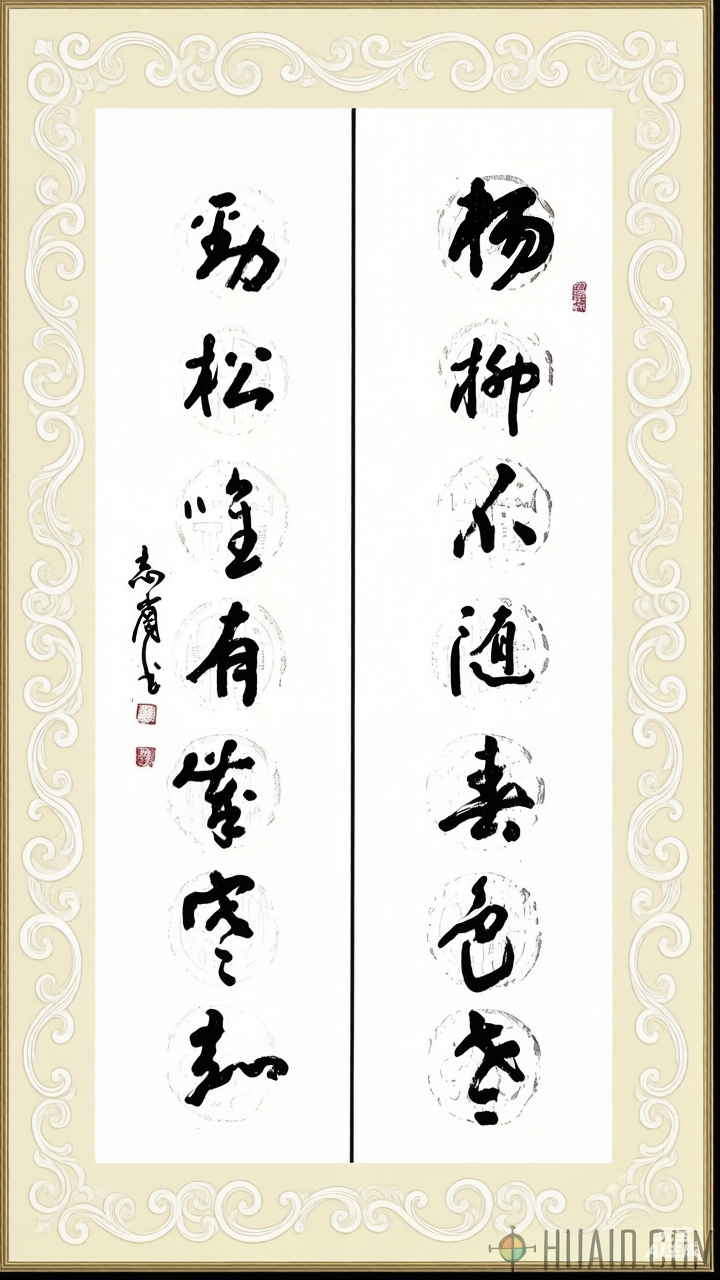 杨柳不随春色老
勁松唯有歲寒知
HUAID.COM